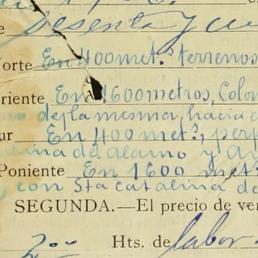 e Sesenta y un
Norte En 400 met.s terrenos
Oriente En 1600 metros, Colon
de la misma, hacia e
Sur En 400 met.s, perp
ina del alamo y Ar
Poniente En 1600 met.s
con Sta Catalina de
SEGUNDA.—El precio de ven
Hts. de labor